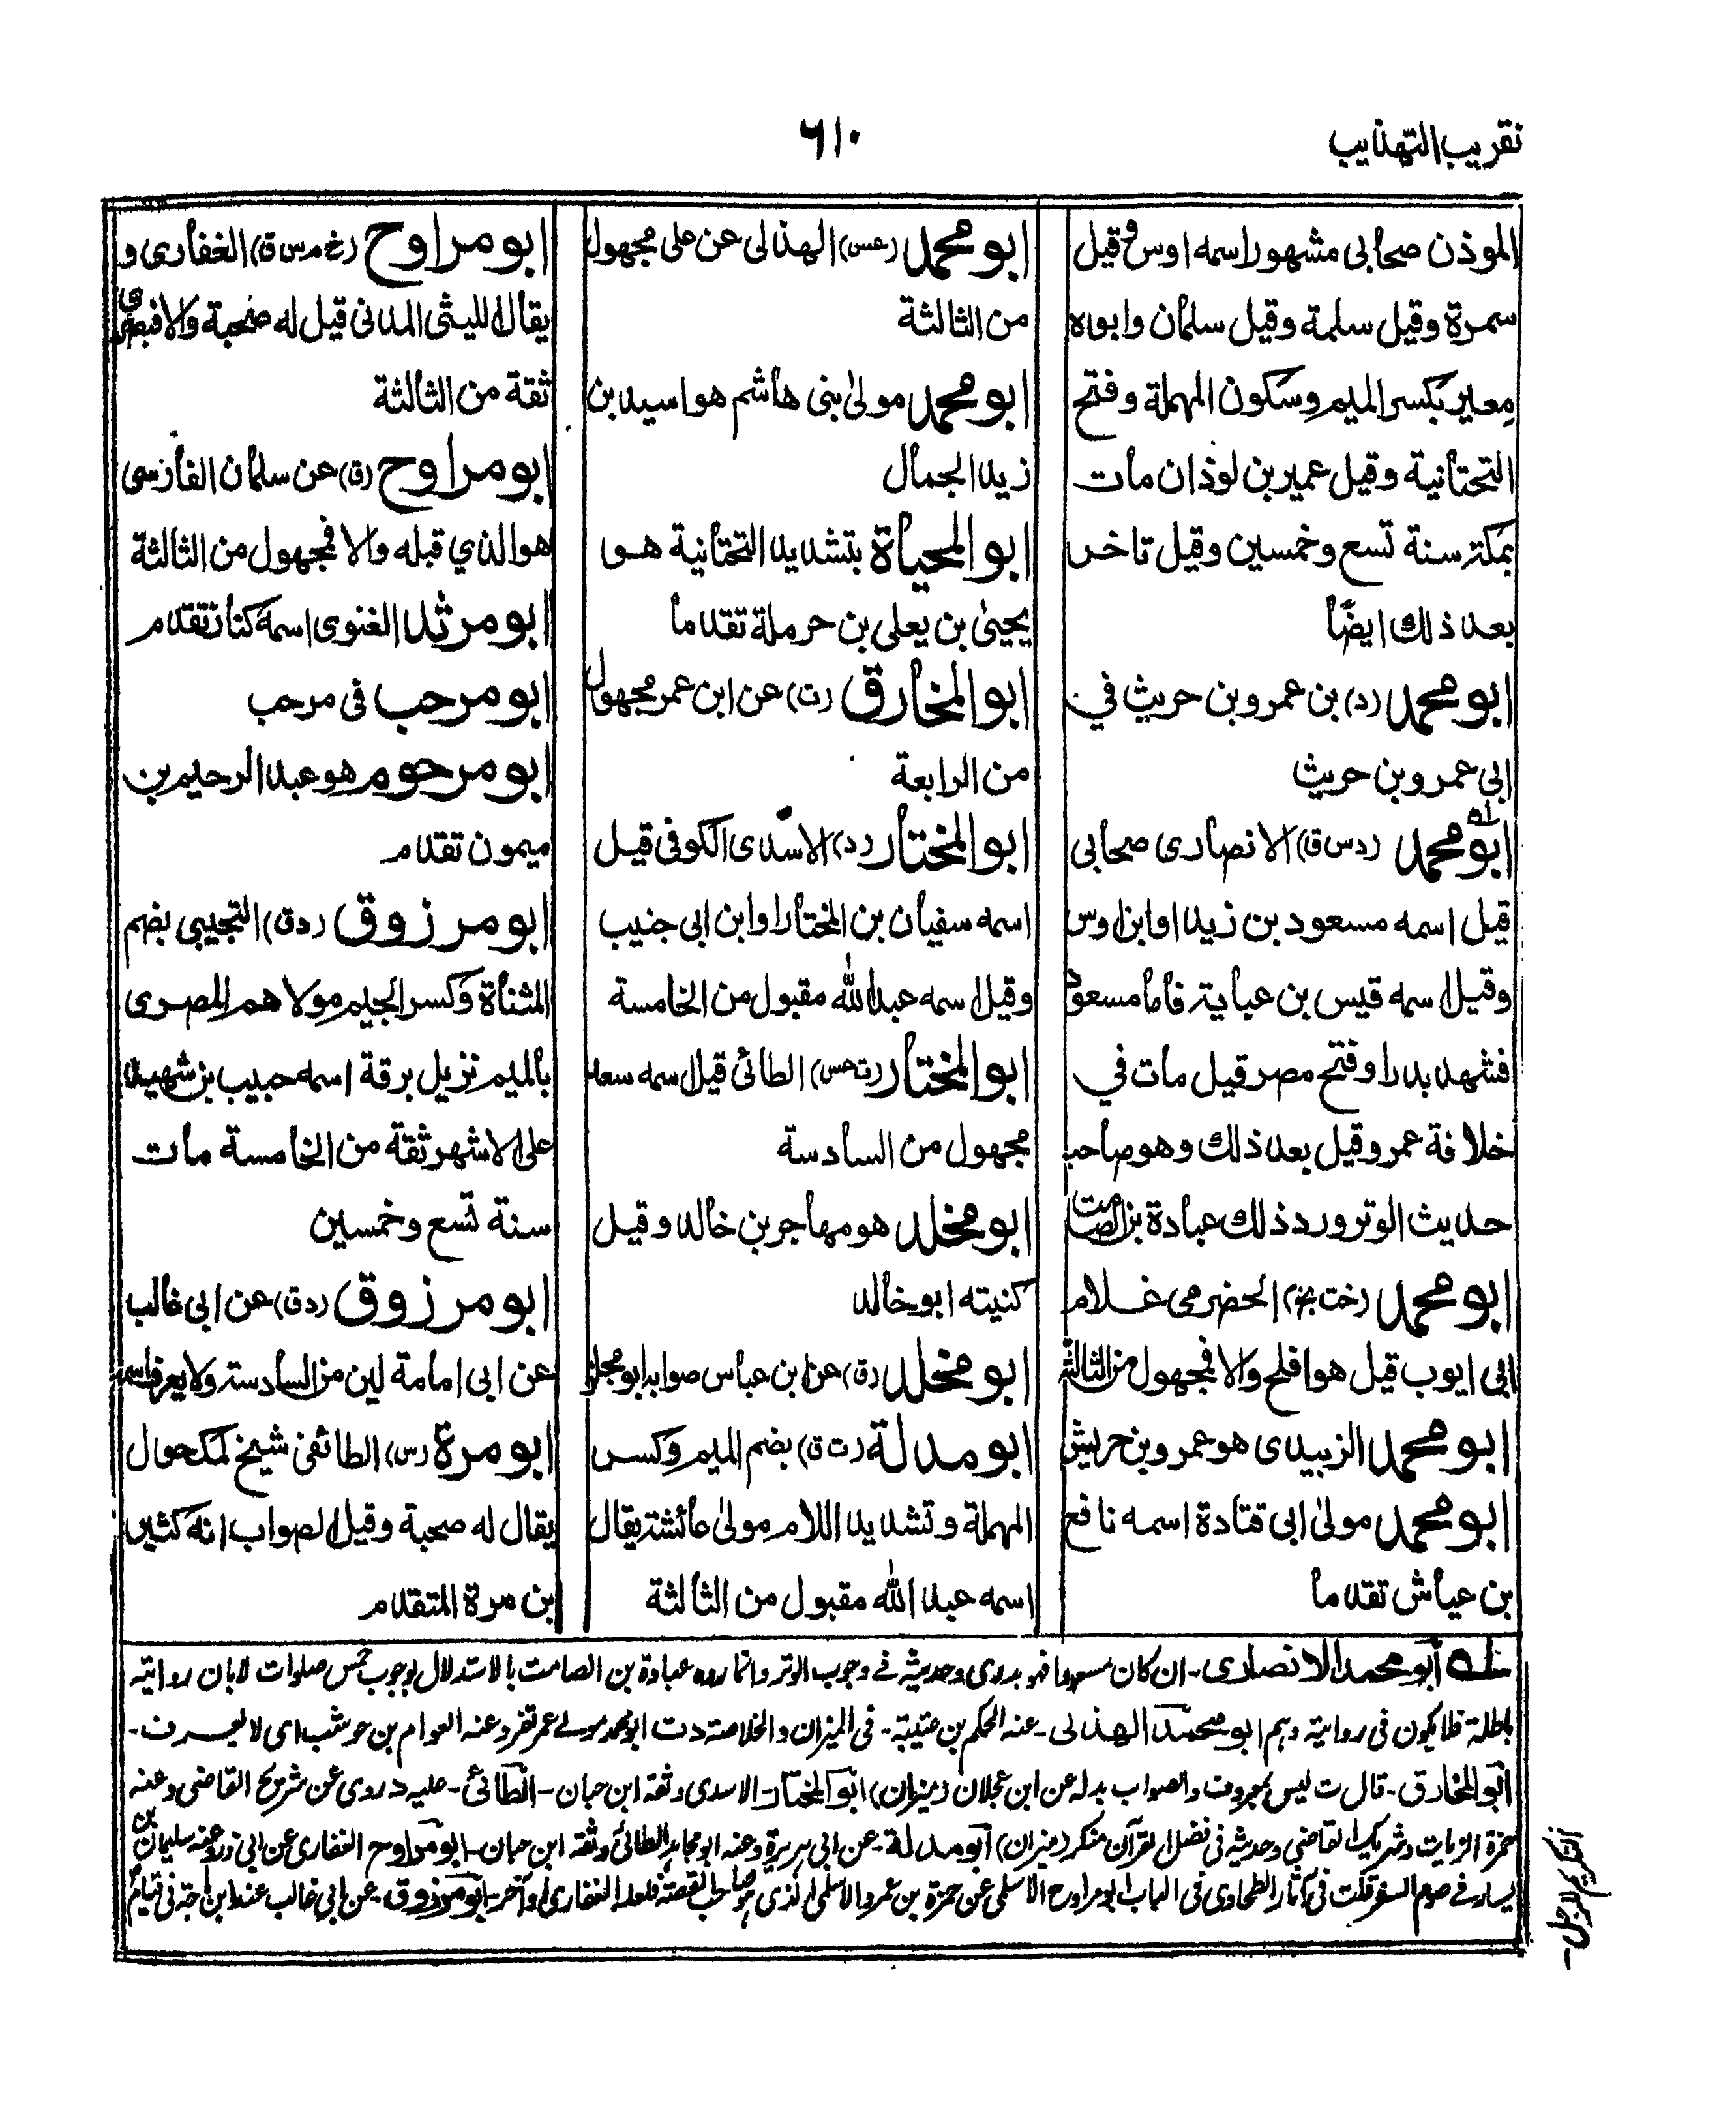 تقريب التهذيب
٦١٠
الموذن صحابى مشهور اسمه اوس وقيل
سمرة وقيل سلمة وقيل سلمان وابوه
معير بكسر الميم وسكون المهملة وفتح
التحتانية وقيل عمير بن لوذان مات
بمكة سنة تسع وخمسين وقيل تاخر
بعد ذلك ايضًا
ابو محمد (د) بن عمرو بن حريث في
ابى عمرو بن حريث
ابو محمد (د س ق) الانصارى صحابى
قيل اسمه مسعود بن زيد او ابن اوس
وقيل اسمه قيس بن عباية فاما مسعود
فشهد بدرا وفتح مصر قيل مات في
خلافة عمر وقيل بعد ذلك وهو صاحب
حديث الوتر ورد ذلك عبادة بن الصامت
ابو محمد الحضرمى غلام
ابى ايوب قيل هو افلح والا فمجهول من الثالثة
ابو محمد الزبيدى هو عمرو بن حريش
ابو محمد مولىٰ ابى قتادة اسمه نافع
بن عياش تقدما
ابو محمد (عس) الهذلى عن على مجهول
من الثالثة
ابو محمد مولىٰ بنى هاشم هو اسيد بن
زيد الجمال
ابو المحياة بتشديد التحتانية هو
يحيىٰ بن يعلى بن حرملة تقدما
ابو المخارق (ت) عن ابن عمر مجهول
من الرابعة
ابو المختار (د) الاسدى الكوفى قيل
اسمه سفيان بن المختار او ابن ابى جنيب
وقيل اسمه عبد الله مقبول من الخامسة
ابو المختار (ت عس) الطائى قيل اسمه سعد
مجهول من السادسة
ابو مخلد هو مهاجر بن خالد وقيل
كنيته ابو خالد
ابو مخلد (ق) عن ابن عباس صوابه ابو مجلز
ابو مدلة (ت ق) بضم الميم وكسر
المهملة وتشديد اللام مولىٰ عائشة يقال
اسمه عبد الله مقبول من الثالثة
ابو مراوح (خ م س ق) الغفارى و
يقال الليثى المدنى قيل له صحبة والا
ثقة من الثالثة
ابو مراوح (ق) عن سلمان الفارسى
هو الذي قبله والا فمجهول من الثالثة
ابو مرثد الغنوى اسمه كناز تقدم
ابو مرحب فى مرحب
ابو مرحوم هو عبد الرحيم بن
ميمون تقدم
ابو مرزوق (د ق) التجيبى بضم
المثناة وكسر الجيم مولاهم المصرى
بالميم نزيل برقة اسمه حبيب بن شهيد
على الاشهر ثقة من الخامسة مات
سنة تسع وخمسين
ابو مرزوق (د ق) عن ابى غالب
عن ابى امامة لين من السادسة ولا يعرف اسمه
ابو مرة (س) الطائفى شيخ لمكحول
يقال له صحبة وقيل الصواب انه كثير
بن مرة المتقدم
له ابو محمد الانصارى - ان كان مسعودا فهو بدرى وحديثه فے وجوب الوتر وانما رده عبادة بن الصامت بالاستدلال بوجوب خمس صلوات لا بان روايته
باطلة فلا يكون فى روايته وهم ابو محمد الهذلى - عنه الحكم بن عتيبة - فى الميزان والخلاصة د ت ابو محمد مولے عمر تفرد عنه العوام بن حوشب اى لا يعرف -
ابو المخارق - قال ت ليس بمعروف والصواب بدله عن ابن عجلان (ميزان) ابو المختار - الاسدى وثقه ابن حبان - الطائى - عليه د روى عن شريح القاضى وعنه
حمزة الزيات وشريك القاضى وحديثه فى فضل القرآن منكر (ميزان) ابو مدلة - عن ابى هريرة وعنه ابو مجاهد الطائى وثقه ابن حبان - ابو مراوح الغفارى عن ابى ذر وعنه سليمان بن
يسار فے صوم السفر قلت فى آثار الطحاوى فى الباب ابو مراوح الاسلمى عن حمزة بن عمرو الاسلمى الذى هو صاحب القصة فلعله الغفارى او آخر - ابو مرزوق - عن ابى غالب عند ابن ماجة فى قيام
للرجل -